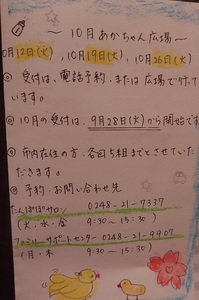 ～ 10月 あかちゃん広場 ～
10月12日(火)，10月19日(火)，10月26日(火)
◎ 受付は、電話予約、または広場で行って
います。
◎ 10月の受付は、9月28日(火)から開始です
◎ 市内在住の方、各回5組までとさせていた
だきます。
◎ 予約・お問い合わせ先
たんぽぽサロン 0248-21-7337
(火、水、金 9:30～15:30)
ファミリーサポートセンター 0248-21-9907
(月、木 9:30～15:30)